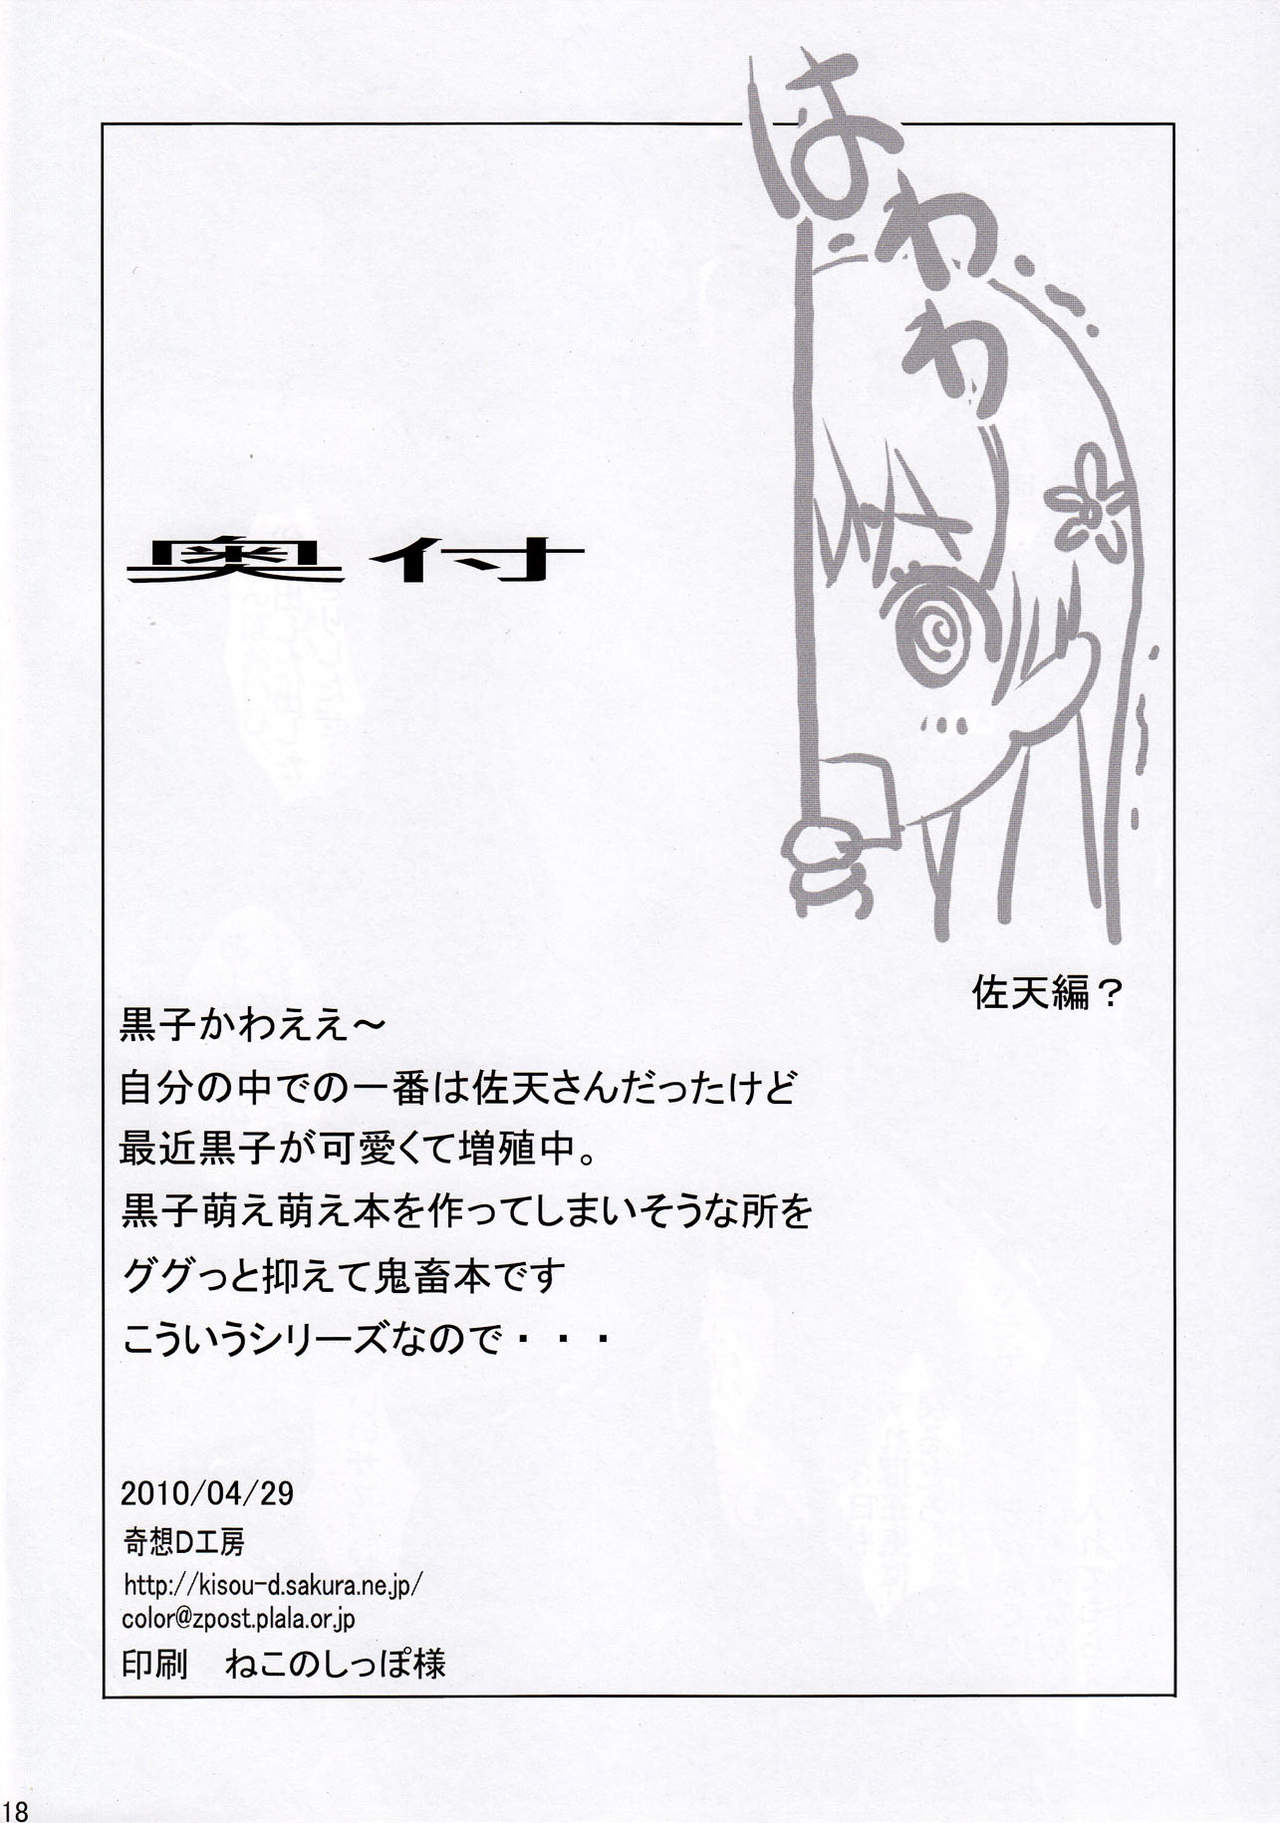 はわわ
奥付
佐天編？
黒子かわええ～
自分の中での一番は佐天さんだったけど
最近黒子が可愛くて増殖中。
黒子萌え萌え本を作ってしまいそうな所を
ググっと抑えて鬼畜本です
こういうシリーズなので・・・
2010/04/29
奇想D工房
http://kisou-d.sakura.ne.jp/
color@zpost.plala.or.jp
印刷　ねこのしっぽ様
18